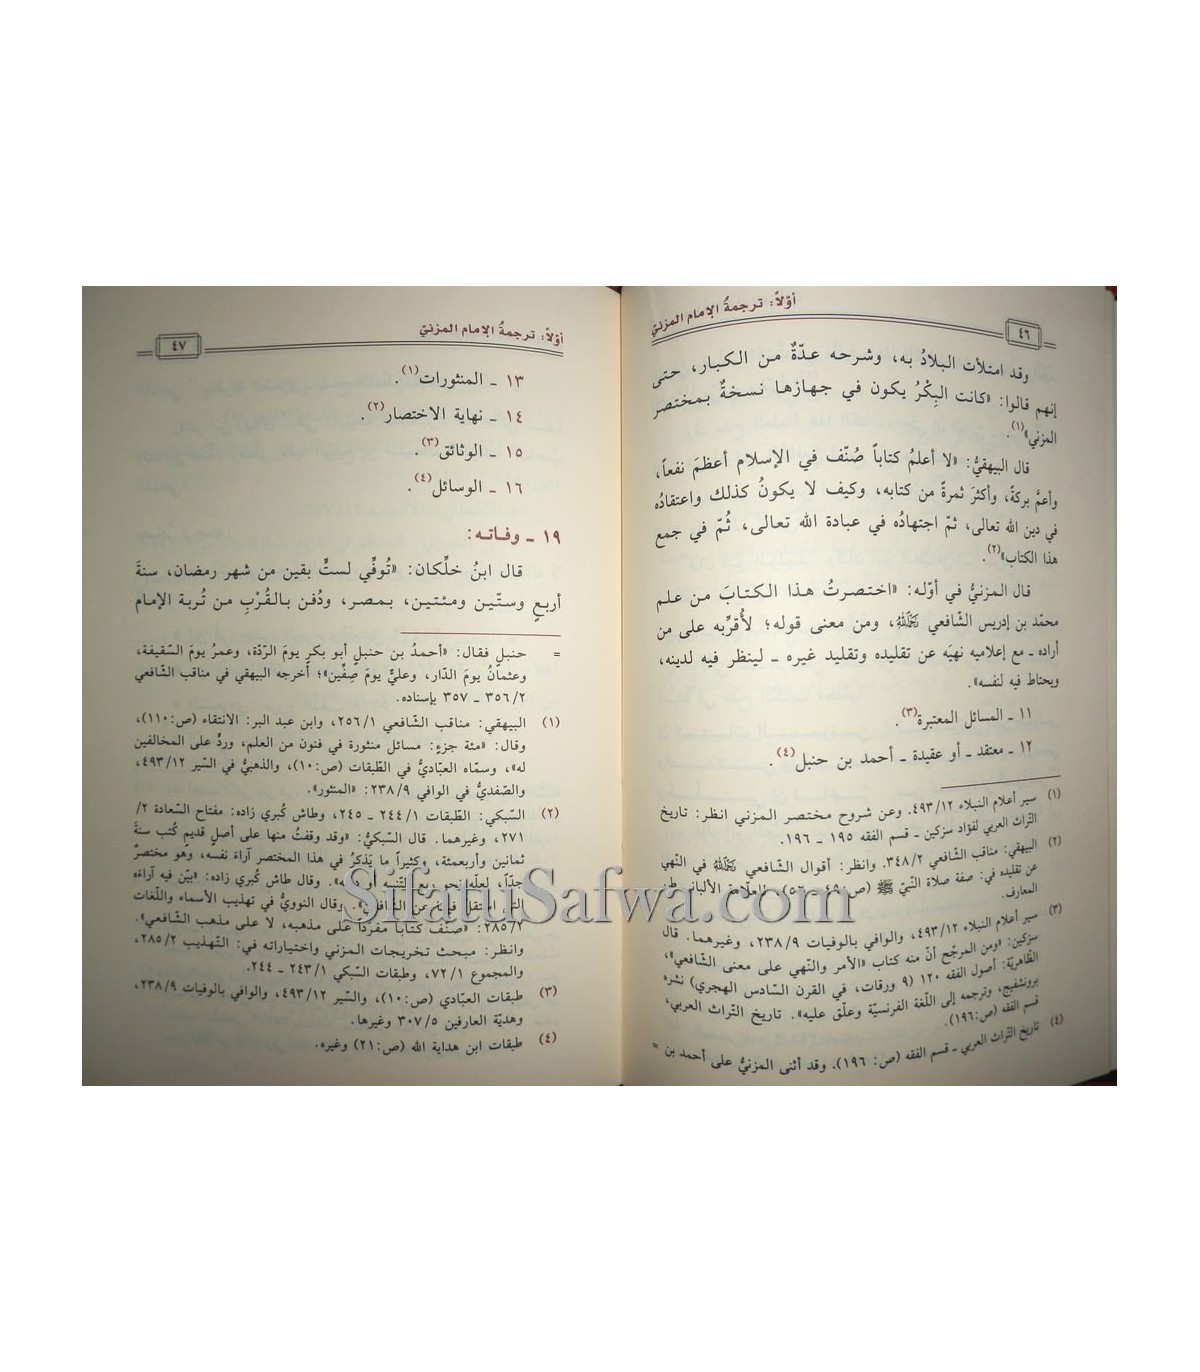 أوّلاً: ترجمةُ الإمام المزنيّ
٤٦
وقد امتلأت البلادُ به، وشرحه عدّةٌ من الكبار، حتى
إنهم قالوا: «كانت البِكْرُ يكون في جهازها نسخةٌ بمختصر
المزني»(١).
قال البيهقيُّ: «لا أعلمُ كتاباً صُنّف في الإسلام أعظمَ نفعاً،
وأعمَّ بركةً، وأكثرَ ثمرةً من كتابه، وكيف لا يكونُ كذلك واعتقادُه
في دين الله تعالى، ثمّ اجتهادُه في عبادة الله تعالى، ثُمّ في جمع
هذا الكتاب»(٢).
قال المزنيُّ في أوّله: «اختصرتُ هذا الكتابَ من علم
محمّد بن إدريس الشّافعي رَحِمَهُ اللهُ، ومن معنى قوله؛ لأُقرِّبه على من
أراده ـ مع إعلاميه نهيَه عن تقليده وتقليد غيره ـ لينظر فيه لدينه،
ويحتاط فيه لنفسه».
١١ ـ المسائل المعتبرة(٣).
١٢ ـ معتقد ـ أو عقيدة ـ أحمد بن حنبل(٤).
(١) سير أعلام النبلاء ٤٩٣/١٢. وعن شروح مختصر المزني انظر: تاريخ
التّراث العربي لفؤاد سزكين ـ قسم الفقه ١٩٥ ـ ١٩٦.
(٢) البيهقي: مناقب الشّافعي ٣٤٨/٢. وانظر: أقوال الشّافعي رَحِمَهُ اللهُ في النّهي
عن تقليده في: صفة صلاة النّبيّ ﷺ (ص٤٩ ـ ٥٦)، للعلّامة الألباني ط:
المعارف.
(٣) سير أعلام النبلاء ٤٩٣/١٢، والوافي بالوفيات ٢٣٨/٩، وغيرهما. قال
سزكين: «ومن المرجّح أنّ منه كتاب «الأمر والنّهي على معنى الشّافعي»،
الظّاهريّة: أصول الفقه ١٢٠ (٩ ورقات، في القرن السّادس الهجري) نشره
برونشفيج، وترجمه إلى اللّغة الفرنسيّة وعلّق عليه». تاريخ التّراث العربي،
قسم الفقه (ص:١٩٦).
(٤) تاريخ التّراث العربي ـ قسم الفقه (ص: ١٩٦). وقد أثنى المزنيُّ على أحمد بن =
أوّلاً: ترجمةُ الإمام المزنيّ
٤٧
١٣ ـ المنثورات(١).
١٤ ـ نهاية الاختصار(٢).
١٥ ـ الوثائق(٣).
١٦ ـ الوسائل(٤).
١٩ ـ وفاته:
قال ابنُ خلِّكان: «تُوفِّي لستٍّ بقين من شهر رمضان، سنةَ
أربعٍ وستّين ومئتين، بمصر، ودُفن بالقُرْبِ من تُربة الإمام
= حنبلٍ فقال: «أحمدُ بن حنبلٍ أبو بكرٍ يومَ الرّدّة، وعمرُ يومَ السّقيفة،
وعثمانُ يومَ الدّار، وعليٌّ يومَ صِفِّين»؛ أخرجه البيهقي في مناقب الشّافعي
٣٥٦/٢ ـ ٣٥٧ بإسناده.
(١) البيهقي: مناقب الشّافعي ٢٥٦/١، وابن عبد البر: الانتقاء (ص:١١٠)،
وقال: «مئة جزءٍ: مسائل منثورة في فنون من العلم، وردٌّ على المخالفين
له»، وسمّاه العبّاديُّ في الطّبقات (ص:١٠)، والذهبيُّ في السّير ٤٩٣/١٢،
والصّفديُّ في الوافي ٢٣٨/٩: «المنثور».
(٢) السّبكي: الطّبقات ٢٤٤/١ ـ ٢٤٥، وطاش كُبري زاده: مفتاح السّعادة ٢/
٢٧١، وغيرهما. قال السبكيُّ: «وقد وقفتُ منها على أصلٍ قديمٍ كُتب سنةَ
ثمانين وأربعمئة، وكثيراً ما يَذكرُ في هذا المختصر آراءَ نفسه، وهو مختصرٌ
جدّاً، لعلّه نحو ربع التّنبيه أو دونه». وقال طاش كُبري زاده: «بيّن فيه آراءَه
التي استقلّ فيها عن الشّافعي». وقال النوويُّ في تهذيب الأسماء واللّغات
٢٨٥/٢: «صنّف كتاباً مفرداً على مذهبه، لا على مذهب الشّافعي».
وانظر: مبحث تخريجات المزني واختياراته في: التّهذيب ٢٨٥/٢،
والمجموع ٧٢/١، وطبقات السّبكي ٢٤٣/١ ـ ٢٤٤.
(٣) طبقات العبّادي (ص:١٠)، والسّير ٤٩٣/١٢، والوافي بالوفيات ٢٣٨/٩،
وهديّة العارفين ٣٠٧/٥ وغيرها.
(٤) طبقات ابن هداية الله (ص:٢١) وغيره.
SifatuSafwa.com